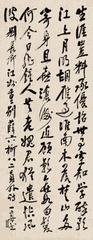 生涯豈料承優詔世事空知學醉歌
江上月明胡雁過淮南木落楚山多
寄身且喜滄洲近顧影無如白髮
何今日龍鍾人共老愧君猶遣慎風
波劉長卿江州重別薛六柳八二員外